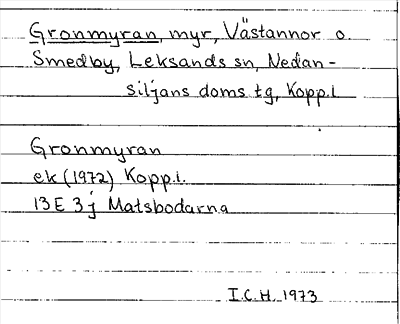 Gronmyran, myr, Västannor o.
Smedby, Leksands sn, Nedan-
siljans doms tg, Kopp.l
Gronmyran
ek (1972) Kopp.l.
13 E 3 j Matsbodarna
I.C.H. 1973